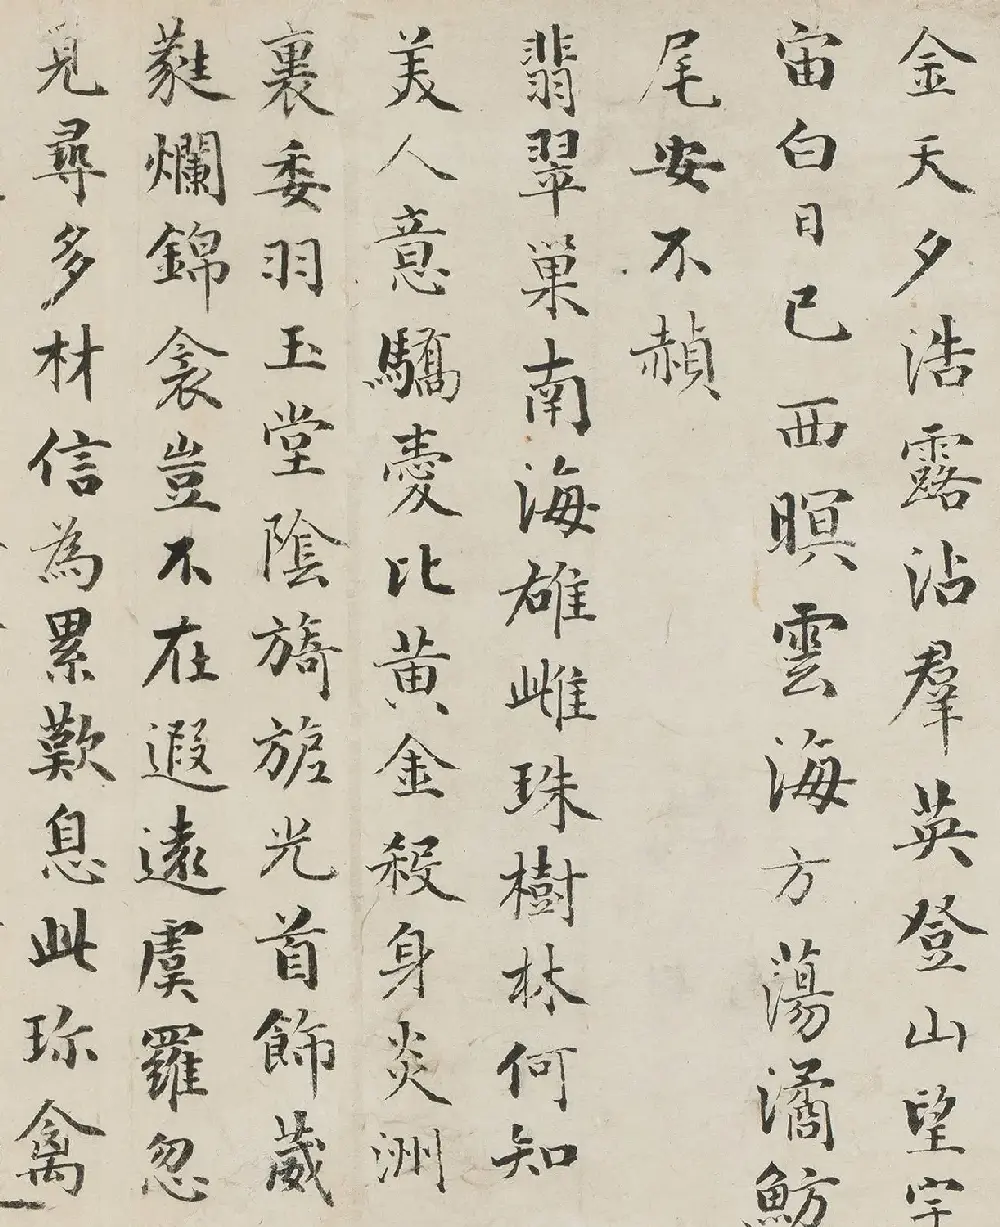 金天夕浩露沾羣英登山望宇
宙白日已西暝雲海方蕩潏魴
尾安不赬
翡翠巢南海雄雌珠樹林何知
美人意驕愛比黃金殺身炎洲
裏委羽玉堂陰旖旎光首飾葳
蕤爛錦衾豈不在遐遠虞羅忽
見尋多材信為累歎息此珎禽